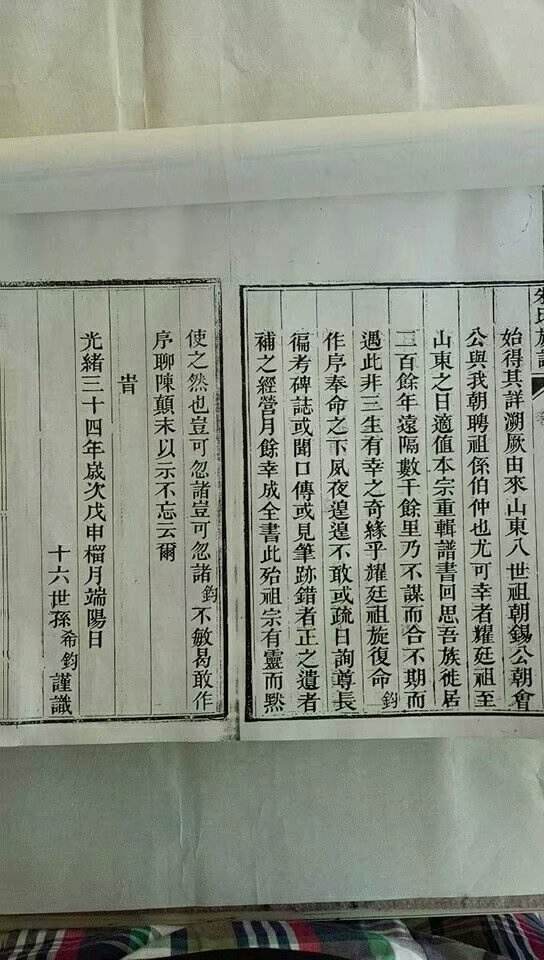 氏族譜
始得其詳溯厥由來山東八世祖朝錫公朝會
公與我朝聘祖係伯仲也尤可幸者耀廷祖至
山東之日適值本宗重輯譜書回思吾族徙居
三百餘年遠隔數千餘里乃不謀而合不期而
遇此非三生有幸之奇緣乎耀廷祖旋復命鈞
作序奉命之下夙夜遑遑不敢或疏日詢尊長
徧考碑誌或聞口傳或見筆跡錯者正之遺者
補之經營月餘幸成全書此殆祖宗有靈而黙
使之然也豈可忽諸豈可忽諸鈞不敏曷敢作
序聊陳顛末以示不忘云爾
旹
光緒三十四年歲次戊申榴月端陽日
十六世孫希鈞謹識